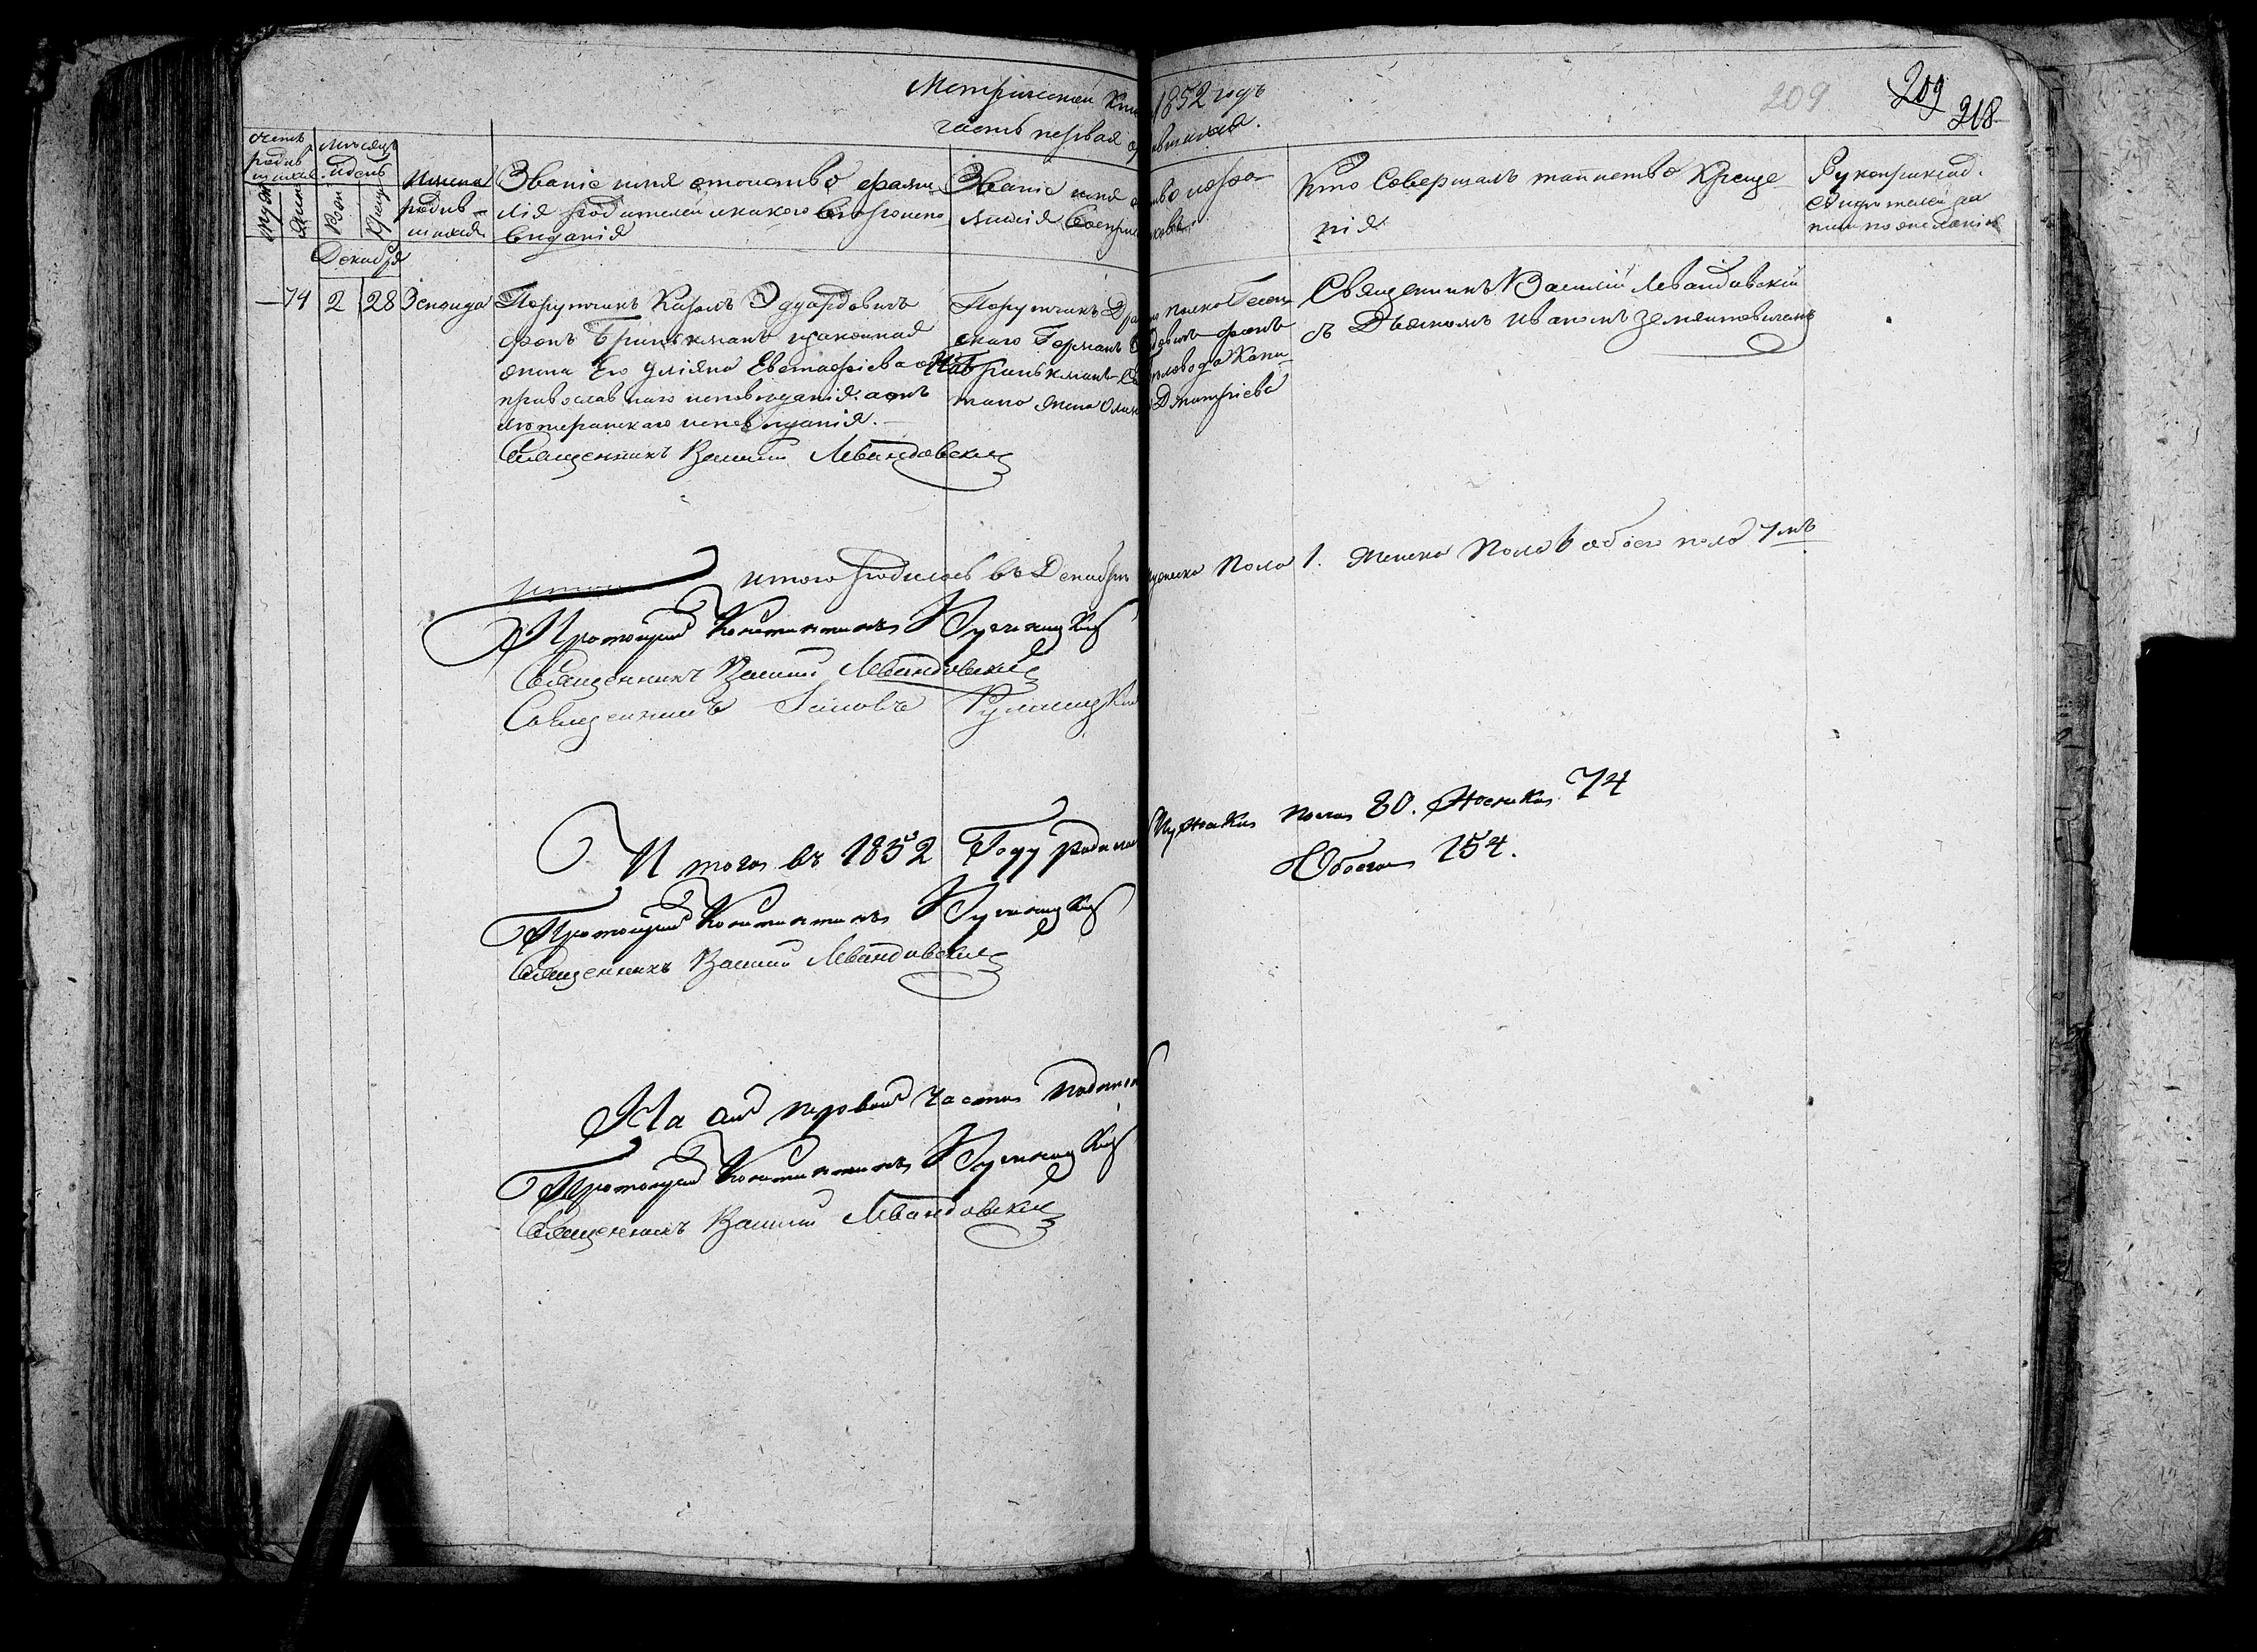 Метрической Кни 1852 годъ
часть первая о
209
209
318
Счетъ родив шихся
Муж
Женс
Месяцъ и день
Рож
Крещ
Имена родив- шихся
Званіе имя отчество фами-
лія родителей и какого вероиспо
веданія
Званіе имя
милія Воспріе
Кто Совершалъ таинство Креще
нія
Рукоприклад.
Свидетелей за
писи по желанію
Декабря
— 74 2 28 Зенаида
Поручикъ Карлъ Эдуардовичъ
фонъ Бринкманъ и законная
жена Его Уліяна Евстафіева она
православнаго исповеданія а онъ
лютеранскаго исповеданія.
Священникъ Василій Левандовскій
Поручикъ Дра полка Гесен
скаго Германъ фонъ
Бринкманъ Капи-
тана жена Дмитріева
Священникъ Василій Левандовскій
съ Дьякомъ Иваномъ Земянтовичемъ
итого
итого родилось въ Декабре мужеска Пола 1. Женска Пола 6 обоего пола 7мъ
Протоіерей Константинъ
Священникъ Василій Левандовскій
Священникъ
Итого въ 1852 Году родилось Мужеска пола 80. Женска 74
Обоего 154.
Протоіерей Константинъ
Священникъ Василій Левандовскій
На сей первой части
Протоіерей Константинъ
Священникъ Василій Левандовскій